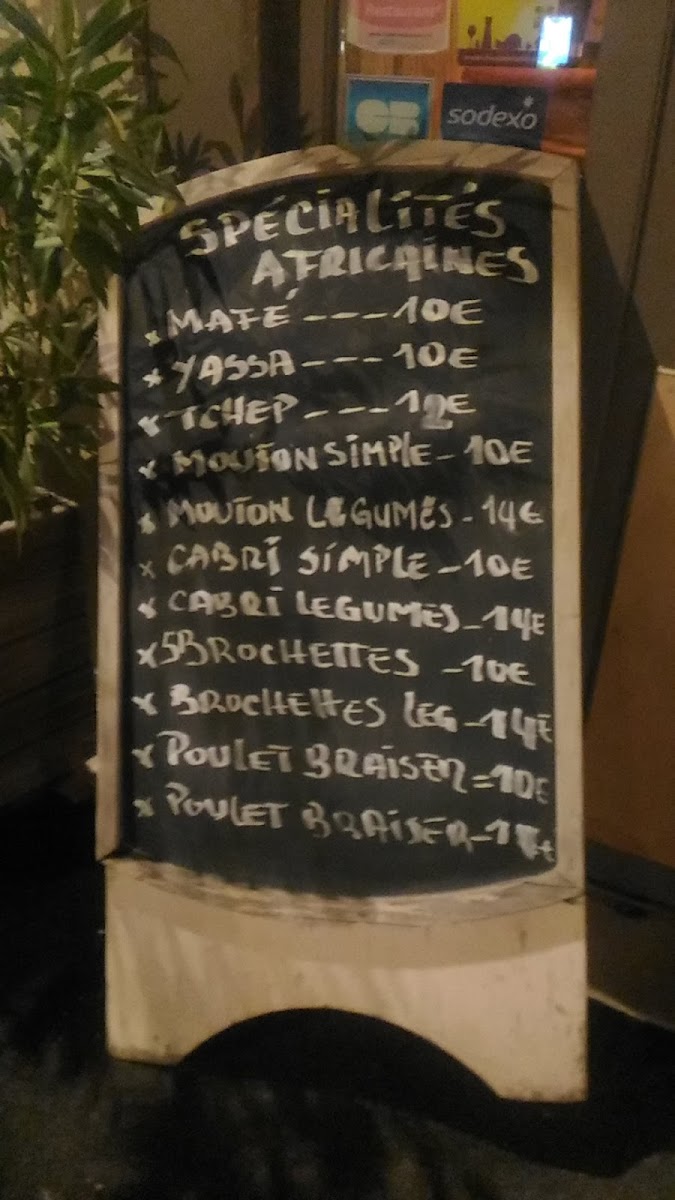 Restaurant
CB
sodexo
SPÉCIALITÉS
AFRICAINES
x MAFÉ --- 10€
x YASSA --- 10€
x TCHEP --- 12€
x MOUTON SIMPLE - 10€
x MOUTON LEGUMES - 14€
x CABRI SIMPLE - 10€
x CABRI LEGUMES - 14€
x 5 BROCHETTES - 10€
x BROCHETTES LEG - 14€
x POULET BRAISER = 10€
x POULET BRAISER -